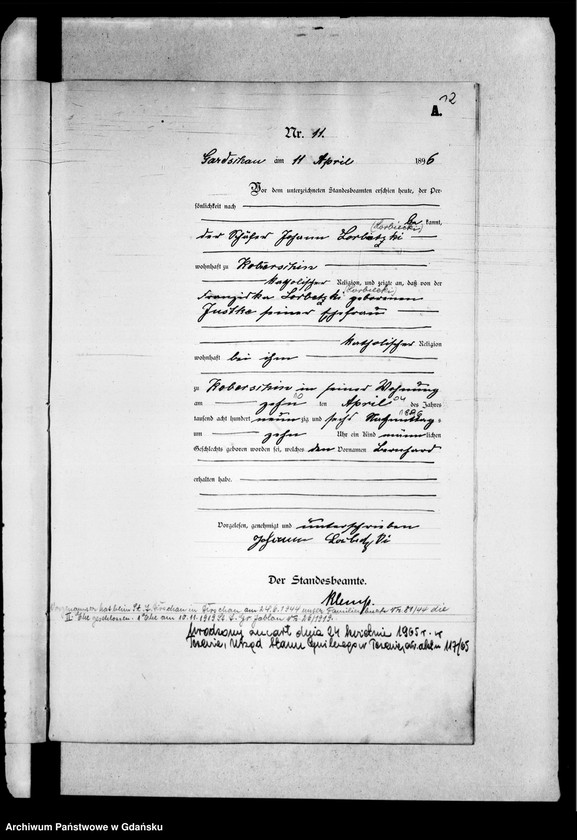 12
A.
Nr. 11.
Gardschau am 11 April 1896
Vor dem unterzeichneten Standesbeamten erschien heute, der Per-
sönlichkeit nach
be kannt,
(Lorbiecki)
der Schäfer Johann Lorbetzki
wohnhaft zu Koberschin
katholischer Religion, und zeigte an, daß von der
(Lorbiecki)
Franziska Lorbetzki geborenen
Justke seiner Ehefrau
katholischer Religion
wohnhaft bei ihm
zu Koberschin in seiner Wohnung
10 04
am zehn ten April des Jahres
1896
tausend acht hundert neun zig und sechs Nachmittags
um zehn Uhr ein Kind männ lichen
Geschlechts geboren worden sei, welches den Vornamen Bernhard
erhalten habe.
Vorgelesen, genehmigt und unterschrieben
Johann
Der Standesbeamte.
Klemp.
hat beim St. A. Dirschau in Dirschau am 24.6.1944 unter Familienbuch Nr. 81/44 die
II. Ehe geschlossen. 1. Ehe am 10.11.1919 St. A. Gr. Jablau Nr. 26/1919.
Urodzony zmarł dnia 24 kwietnia 1965 r. w
Tczewie, Urząd Stanu Cywilnego w Tczewie, nr. aktu 117/65
Archiwum Państwowe w Gdańsku